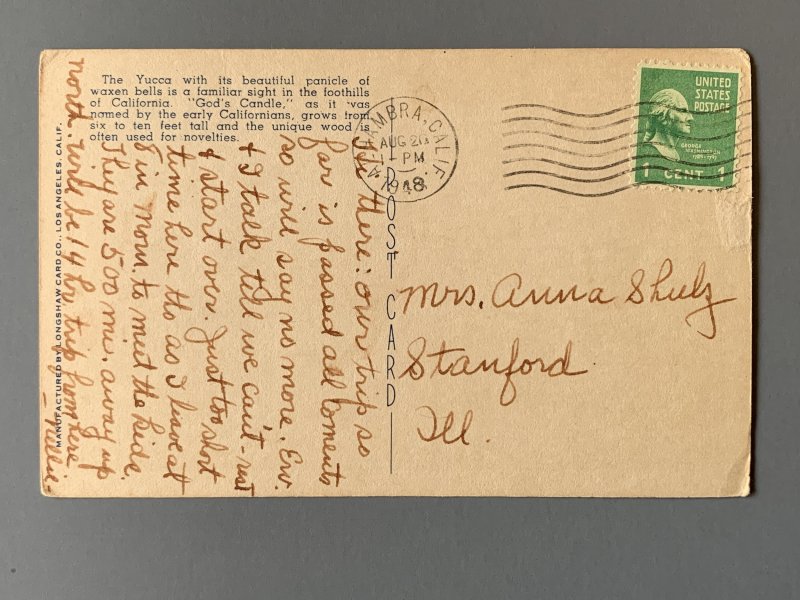 The Yucca with its beautiful panicle of
waxen bells is a familiar sight in the foothills
of California. "God's Candle," as it was
named by the early Californians, grows from
six to ten feet tall and the unique wood is
often used for novelties.
MANUFACTURED BY LONGSHAW CARD CO., LOS ANGELES, CALIF.
POST CARD
ALHAMBRA, CALIF.
AUG 20
1 - PM
1948
UNITED
STATES
POSTAGE
GEORGE
WASHINGTON
1789-1797
1 CENT 1
Mrs. Anna Shulz
Stanford
Ill.
there: our trip so
far is passed all coments
so will say no more. Erv.
+ I talk till we can't - rest
+ start over. Just too short
time here tho as I leave at
8 in morn. to meet the kids.
They are 500 mi. away up
north. will be 14 hr trip from here
- Nellie -